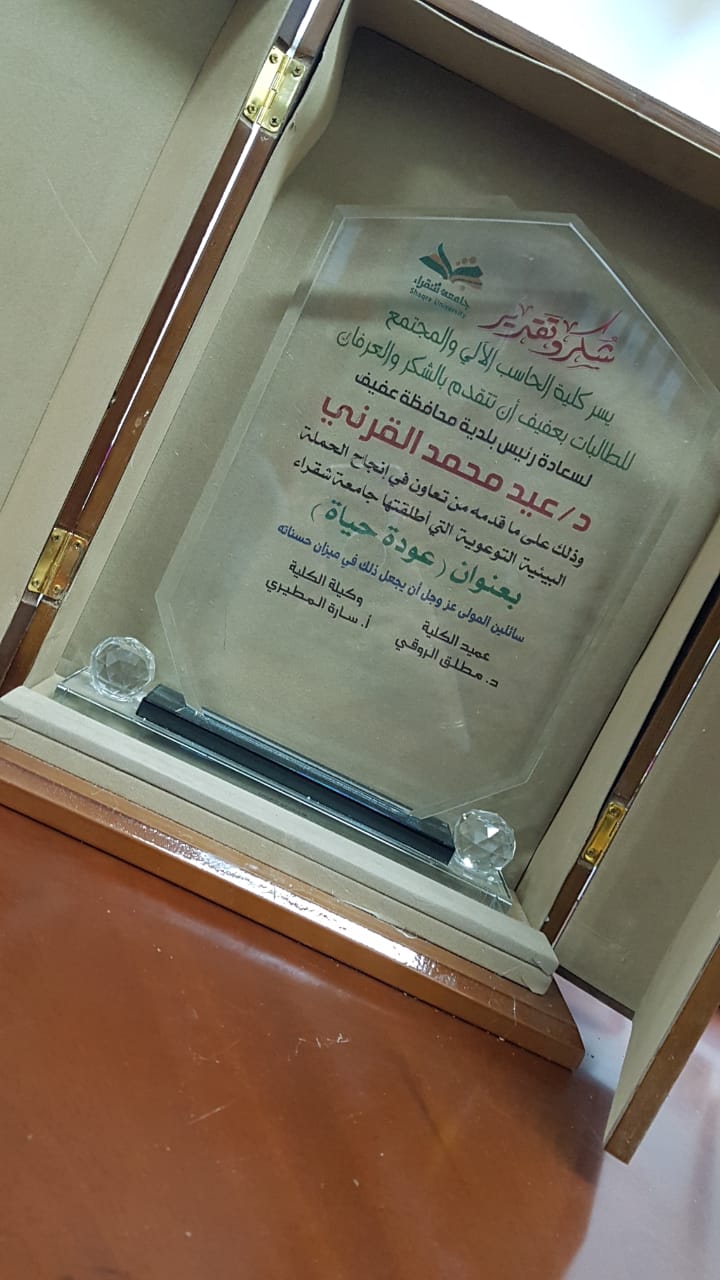 جامعة شقراء
Shaqra University
شكر وتقدير
يسر كلية الحاسب الآلي والمجتمع
للطالبات بعفيف أن تتقدم بالشكر والعرفان
لسعادة رئيس بلدية محافظة عفيف
د/عيد محمد القرني
وذلك على ما قدمه من تعاون في إنجاح الحملة
البيئية التوعوية التي أطلقتها جامعة شقراء
بعنوان ( عودة حياة )
سائلين المولى عز وجل أن يجعل ذلك في ميزان حسناته
عميد الكلية
د. مطلق الروقي
وكيلة الكلية
أ. سارة المطيري